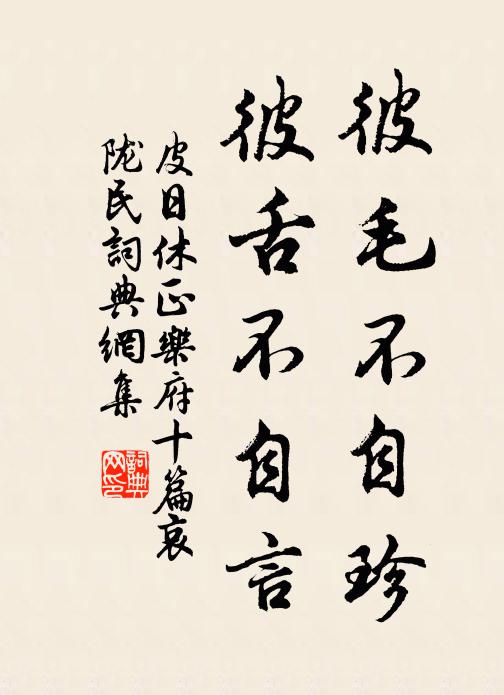 彼毛不自珍
彼舌不自言
皮日休正樂府十篇哀
陇民詞典網集
詞典網印